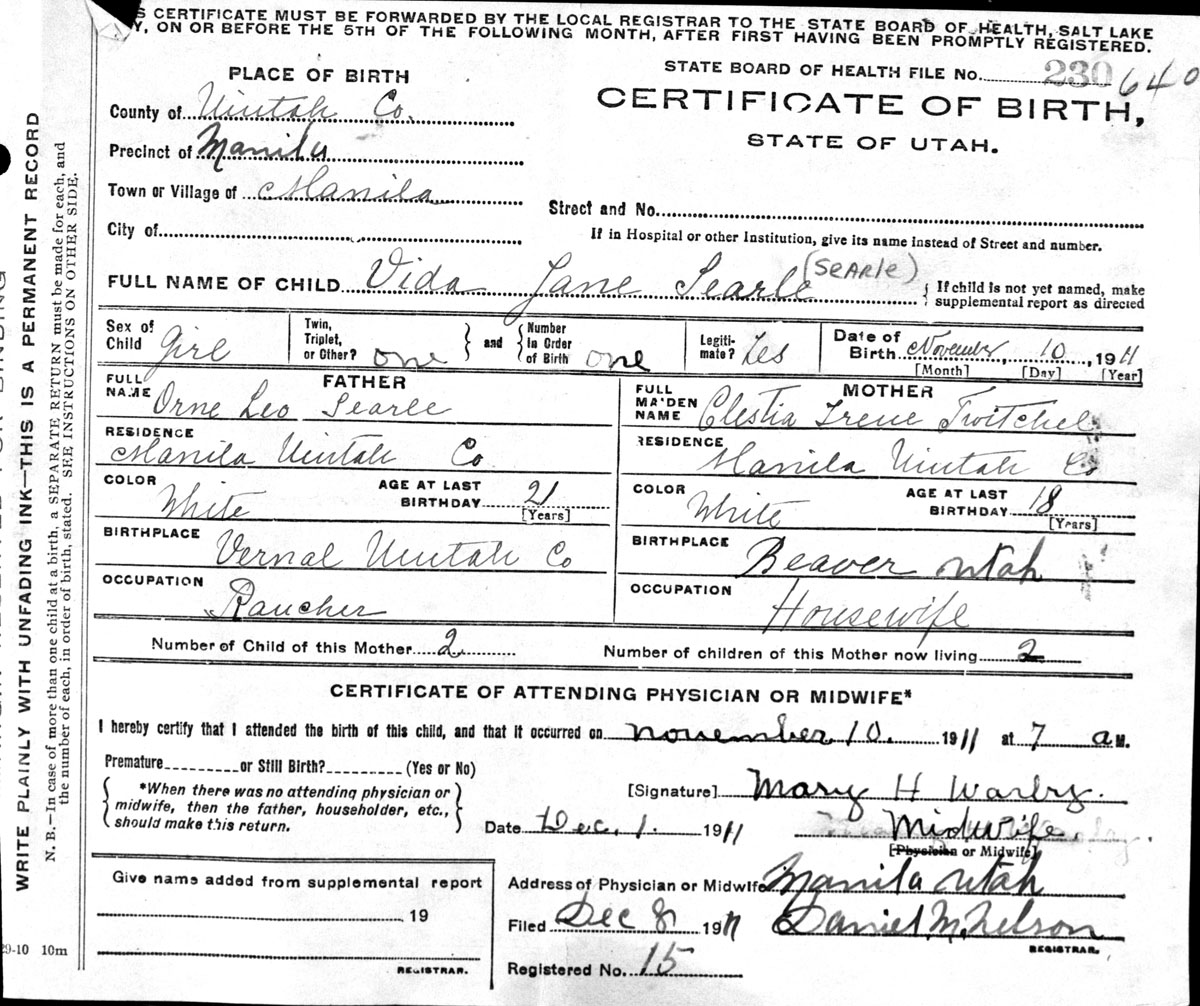 S CERTIFICATE MUST BE FORWARDED BY THE LOCAL REGISTRAR TO THE STATE BOARD OF HEALTH, SALT LAKE
Y, ON OR BEFORE THE 5TH OF THE FOLLOWING MONTH, AFTER FIRST HAVING BEEN PROMPTLY REGISTERED.
STATE BOARD OF HEALTH FILE No. 230 640
PLACE OF BIRTH
CERTIFICATE OF BIRTH,
STATE OF UTAH.
County of Uintah Co.
Precinct of Manila
Town or Village of Manila
Street and No.
City of
If in Hospital or other Institution, give its name instead of Street and number.
FULL NAME OF CHILD Vida Jane Searle (SEARLE) { If child is not yet named, make
supplemental report as directed
Sex of Child Girl Twin, Triplet, or Other? one } and { Number In Order of Birth one Legiti-mate? Yes Date of Birth November, 10, 1911
[Month] [Day] [Year]
FATHER
FULL NAME Orne Leo Searle
RESIDENCE
Manila Uintah Co
COLOR White AGE AT LAST BIRTHDAY 21 [Years]
BIRTHPLACE
Vernal Uintah Co
OCCUPATION
Rancher
MOTHER
FULL MAIDEN NAME Clestia Irene Twitchel
RESIDENCE
Manila Uintah Co
COLOR White AGE AT LAST BIRTHDAY 18 [Years]
BIRTHPLACE
Beaver Utah
OCCUPATION
Housewife
Number of Child of this Mother 2 Number of children of this Mother now living 2
CERTIFICATE OF ATTENDING PHYSICIAN OR MIDWIFE*
I hereby certify that I attended the birth of this child, and that it occurred on november 10. 1911 at 7 a M.
Premature or Still Birth? (Yes or No)
*When there was no attending physician or
midwife, then the father, householder, etc.,
should make this return.
[Signature] Mary H Warby.
Date Dec, 1. 1911 Midwife.
[Physician or Midwife]
Give name added from supplemental report
19
REGISTRAR.
Address of Physician or Midwife Manila Utah
Filed Dec 8 1911 Daniel M. Nelson
REGISTRAR.
Registered No. 15
WRITE PLAINLY WITH UNFADING INK—THIS IS A PERMANENT RECORD
N. B.—In case of more than one child at a birth, a SEPARATE RETURN must be made for each, and
the number of each, in order of birth, stated. SEE INSTRUCTIONS ON OTHER SIDE.
29-10 10m